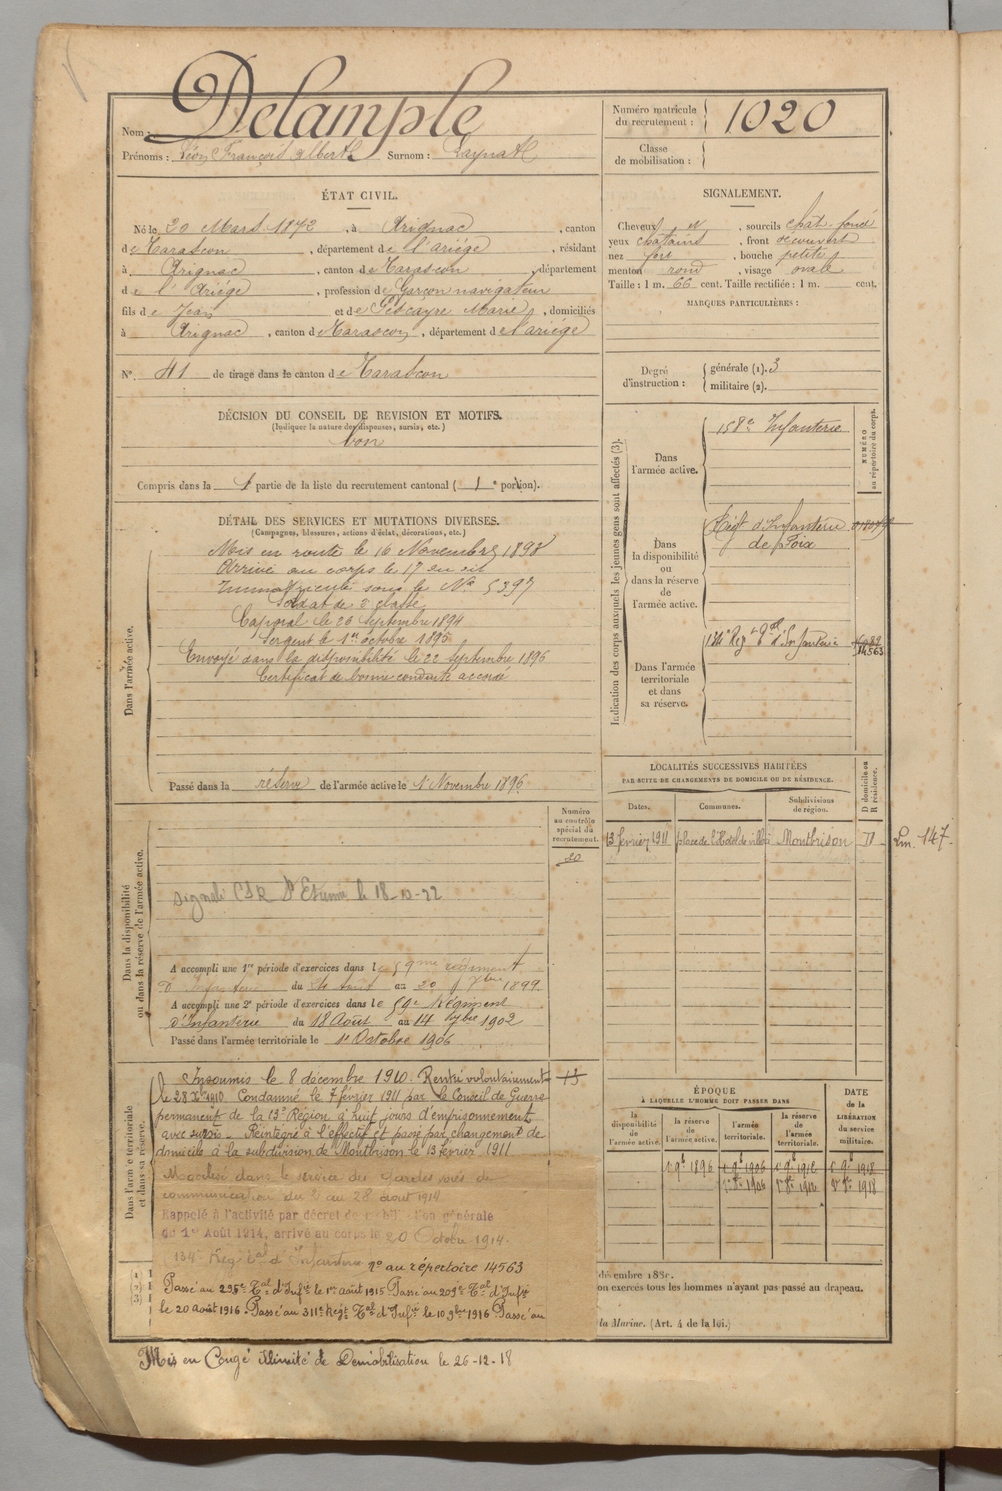 Nom : Delample
Prénoms : Léon François Albert Surnom :
Numéro matricule du recrutement : 1020
Classe de mobilisation :
ÉTAT CIVIL.
Né le 20 Mars 1872, à Arignac, canton
de Tarascon, département de l'ariége, résidant
à Arignac, canton de Tarascon, département
de l'Ariége, profession de Garçon navigateur
fils de Jean et de Marie, domiciliés
à Arignac, canton de Tarascon, département de l'ariége
N° 41 de tirage dans le canton de Tarascon
DÉCISION DU CONSEIL DE REVISION ET MOTIFS.
(Indiquer la nature des dispenses, sursis, etc.)
bon
Compris dans la 1 partie de la liste du recrutement cantonal (1e portion).
DÉTAIL DES SERVICES ET MUTATIONS DIVERSES.
(Campagnes, blessures, actions d'éclat, décorations, etc.)
Dans l'armée active.
Mis en route le 16 Novembre
Arrivé au corps le 17 du dit
Immatriculé sous le No 5397
Soldat de 2e classe
Caporal le 26 Septembre 1894
Sergent le 1er octobre 1895
Envoyé dans la disponibilité le 22 Septembre 1896
Certificat de bonne conduite accordé
Passé dans la réserve de l'armée active le 1 Novembre 1896
Dans la disponibilité ou dans la réserve de l'armée active.
Numéro au contrôle spécial du recrutement.
20
signalé CSR St Etienne le 18-10-22
A accompli une 1re période d'exercices dans le 59me régiment
d'Infanterie du août au 20 7bre 1899
A accompli une 2e période d'exercices dans le 59e Régiment
d'Infanterie du 18 Août au 14 7bre 1902
Passé dans l'armée territoriale le 1er Octobre 1906
Dans l'armée territoriale et dans sa réserve.
Insoumis le 8 décembre 1910. Rentré volontairement
le 28 Xbre 1910. Condamné le 7 février 1911 par le Conseil de Guerre
permanent de la 13e Région à huit jours d'emprisonnement
avec sursis. Réintégré à l'effectif et passé par changement de
domicile à la subdivision de Montbrison le 13 février 1911
Mobilisé dans le service des Gardes voies de
communication du 2 au 28 août 1914
Rappelé à l'activité par décret de mobilisation générale
du 1er Août 1914, arrivé au corps le 20 Octobre 1914.
134e Rég. tal d'Infanterie no au répertoire 14563
Passé au 298e Tal d'Infie le 1er août 1915 Passé au 209e Tal d'Infie
le 20 août 1916 Passé au 311e Régt Tal d'Infie le 10 9bre 1916 Passé au
Mis en Congé illimité de Démobilisation le 26-12-18
SIGNALEMENT.
Cheveux et, sourcils chat. foncé
yeux chatains, front découvert
nez fort, bouche petite
menton rond, visage ovale
Taille : 1 m. 66 cent. Taille rectifiée : 1 m. cent.
MARQUES PARTICULIÈRES :
Degré d'instruction :
générale (1). 3
militaire (2).
Indication des corps auxquels les jeunes gens sont affectés (3).
NUMÉRO au répertoire du corps.
Dans l'armée active.
158e Infanterie
Dans la disponibilité ou dans la réserve de l'armée active.
Régt d'Infanterie
de Foix
Dans l'armée territoriale et dans sa réserve.
134e Reg tal d'Infanterie
14563
LOCALITÉS SUCCESSIVES HABITÉES
PAR SUITE DE CHANGEMENTS DE DOMICILE OU DE RÉSIDENCE.
Dates. Communes. Subdivisions de région. D domicile ou R résidence.
13 février 1911 place de l'Hotel de ville Montbrison D
147
ÉPOQUE
À LAQUELLE L'HOMME DOIT PASSER DANS
DATE de la LIBÉRATION du service militaire.
la disponibilité de l'armée active. la réserve de l'armée active. l'armée territoriale. la réserve de l'armée territoriale.
1er 9b 1896 1er 9b 1906 1er 9b 1912 1er 9b 1918
décembre 188
on exercés tous les hommes n'ayant pas passé au drapeau.
la Marine. (Art. 4 de la loi.)